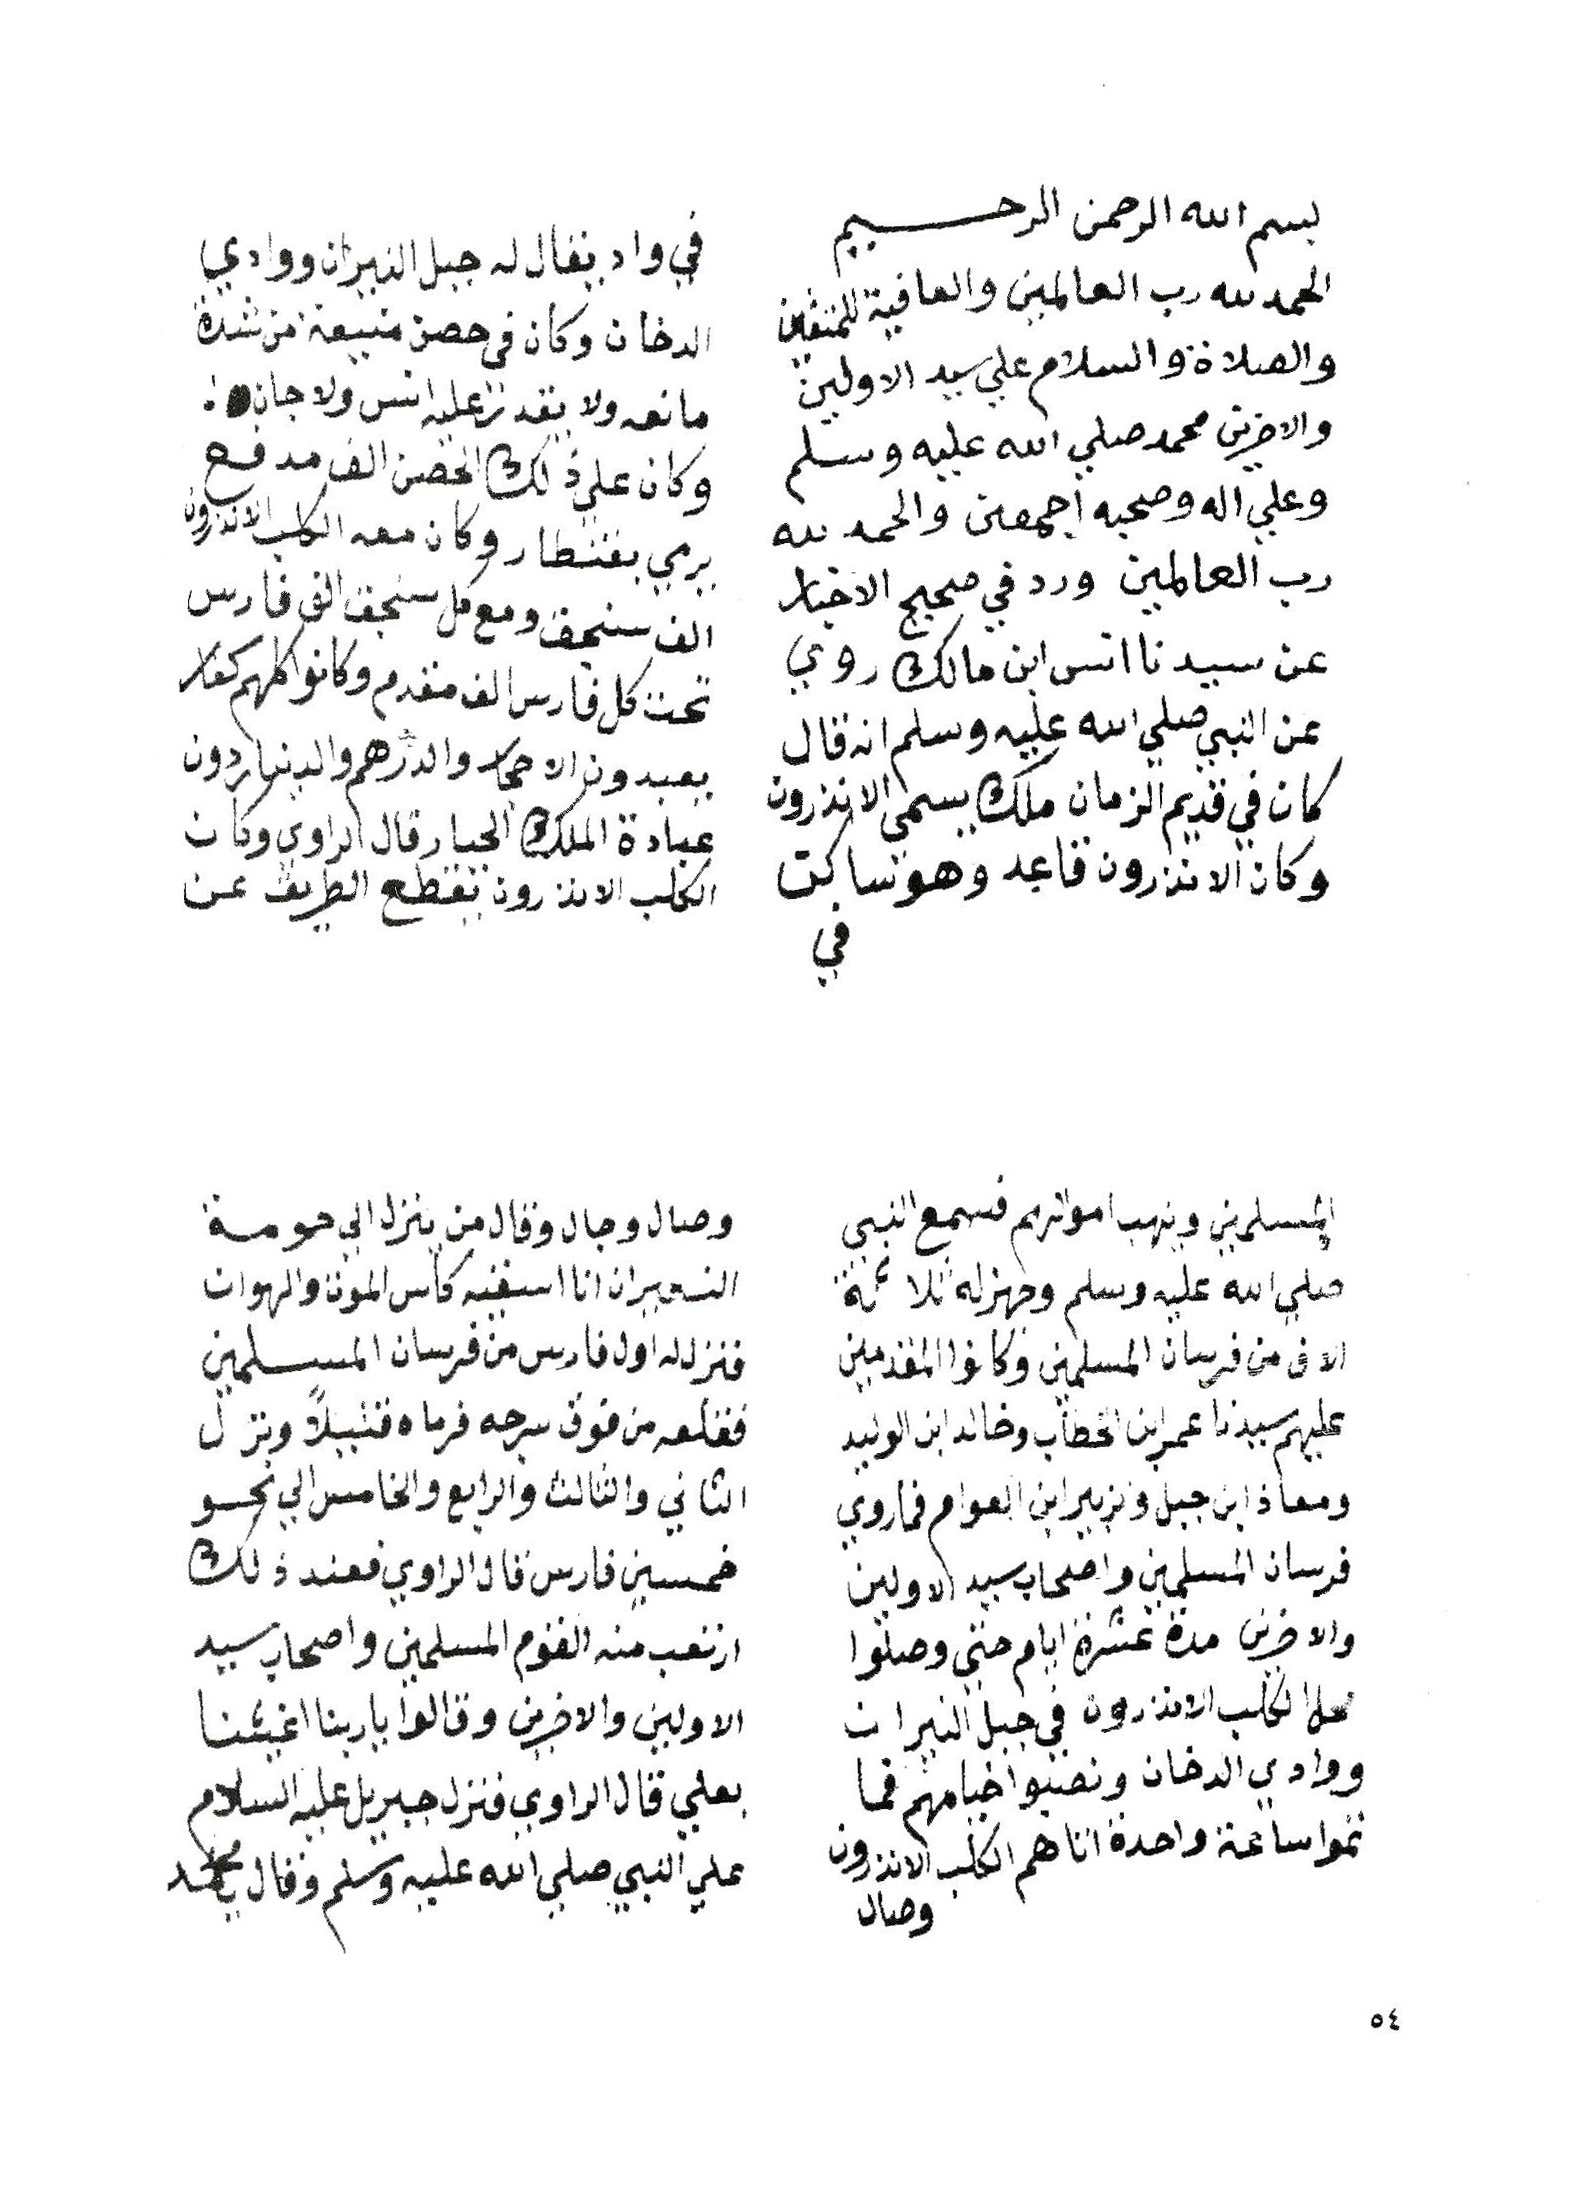 بسم الله الرحمن الرحيم
الحمد لله رب العالمين والعافية للمتقين
والصلاة والسلام علي سيد الاولين
والاخرين محمد صلي الله عليه وسلم
وعلي اله وصحبه اجمعين والحمد لله
رب العالمين ورد في صحيح الاخبار
عن سيدنا انس ابن مالك روي
عن النبي صلي الله عليه وسلم انه قال
كان في قديم الزمان ملك يسمي الاندرون
وكان الاندرون قاعد وهو ساكت
في
في واد يقال له جبل النيران ووادي
الدخان وكان في حصن منيعة من شدة
مانعه ولا يقدر عليه انس ولا جان
وكان علي ذلك الحصن الف مدفع
يرمي بقنطار وكان معه الكلب الاندرون
الف سنجق ومع كل سنجق الف فارس
تحت كل فارس الف مقدم وكانوا كلهم كفار
يعبدون الاحجار والدرهم والدينار دون
عبادة الملك الجبار قال الراوي وكان
الكلب الاندرون يقطع الطريق عن
المسلمين وينهب اموالهم فسمع النبي
صلي الله عليه وسلم وجهز له ثلاثمة
الاف من فرسان المسلمين وكانوا المقدمين
عليهم سيدنا عمر ابن الخطاب وخالد ابن الوليد
ومعاذ ابن جبل وزبير ابن العوام فماروي
فرسان المسلمين واصحاب سيد الاولين
والاخرين مدة عشرة ايام حتي وصلوا
الكلب الاندرون في جبل النيران
ووادي الدخان ونصبوا خيامهم فما
تموا ساعة واحدة اتاهم الكلب الاندرون
وصال
وصال وجال وقال من ينزل الي حومة
انا اسقيه كأس الموت والهوان
فنزل له اول فارس من فرسان المسلمين
فقلعه من فوق سرجه فرماه قتيلاً ونزل
الثاني والثالث والرابع والخامس الي نحو
خمسين فارس قال الراوي فعند ذلك
ارتعب منه القوم المسلمين واصحاب سيد
الاولين والاخرين وقالوا يا ربنا اغيثنا
بعلي قال الراوي فنزل جبريل عليه السلام
علي النبي صلي الله عليه وسلم وقال يا محمد
٥٤